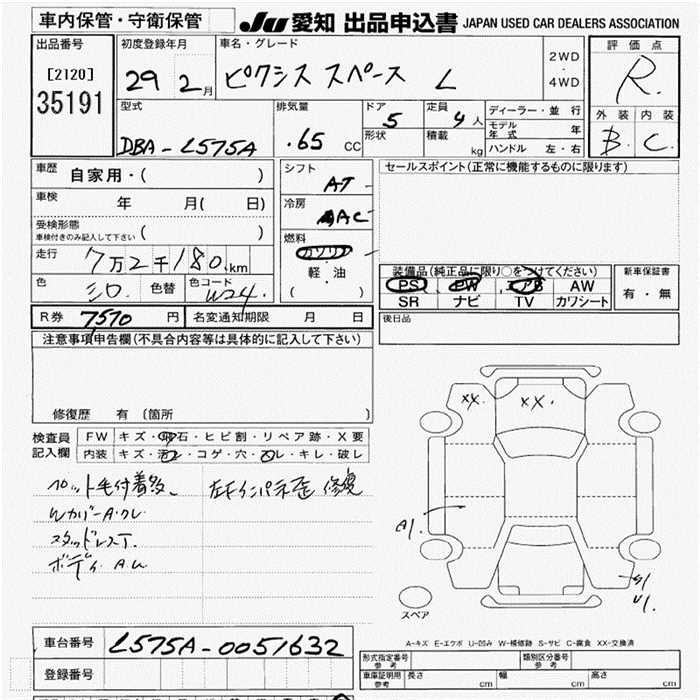 車内保管・守衛保管
JU 愛知 出品申込書 JAPAN USED CAR DEALERS ASSOCIATION
出品番号
[2120]
35191
初度登録年月
29 2月
車名・グレード
ピクシス スペース L
2WD
・
4WD
評価点
R
外装 内装
B. C.
型式
DBA-L575A
排気量
.65 CC
ドア 5
形状
定員 4人
積載 kg
ディーラー・並行
モデル年式 年
ハンドル 左・右
車歴 自家用・( )
車検 年 月( 日)
受検形態
車検付きのみ記入して下さい ( )
走行 7万2千180km
色 シロ 色替 色コード W24.
シフト
AT
冷房
AC
燃料
ガソリン
・
軽・油
( )
セールスポイント(正常に機能するものに限ります)
装備品(純正品に限り○をつけてください)
PS PW AB AW
SR ナビ TV カワシート
新車保証書
有・無
R券 7510 円 名変通知期限 月 日
後日品
注意事項申告欄(不具合内容等は具体的に記入して下さい)
修復歴 有 〔箇所 〕
検査員記入欄
FW キズ・飛石・ヒビ割・リペア跡・X要
内装 キズ・汚レ・コゲ・穴・スレ・キレ・破レ
ペット毛付着多、
WカバーA.クレ
スタッドレスT.
ボディ A.U
左F.インパネ歪 修復
XX. XX.
A1.
S1
U1.
スペア
A-キズ E-エクボ U-凹み W-補修跡 S-サビ C-腐食 XX-交換済
車台番号 L575A-0051632
登録番号
形式指定番号 参考
類別区分番号 参考
車庫証明用 参考 長さ cm 幅 cm 高さ cm